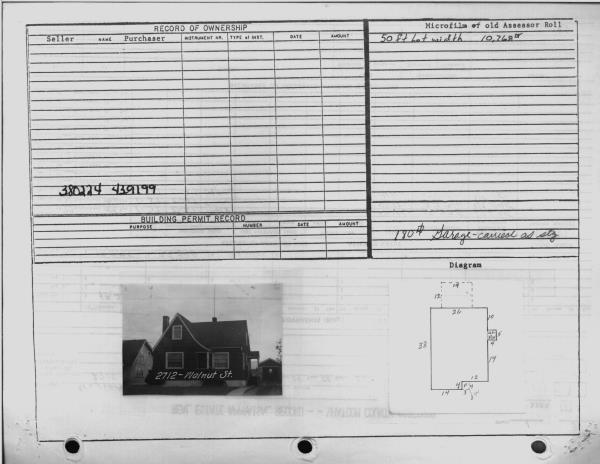 RECORD OF OWNERSHIP
Seller NAME Purchaser INSTRUMENT NR. TYPE of INST. DATE AMOUNT
380224 439199
BUILDING PERMIT RECORD
PURPOSE NUMBER DATE AMOUNT
Microfilm of old Assessor Roll
50 ft lot width 10,768
190# Garage-carried as stg
Diagram
2712-Walnut St.
19
12
26
10
38
4
19
12
14
4
3